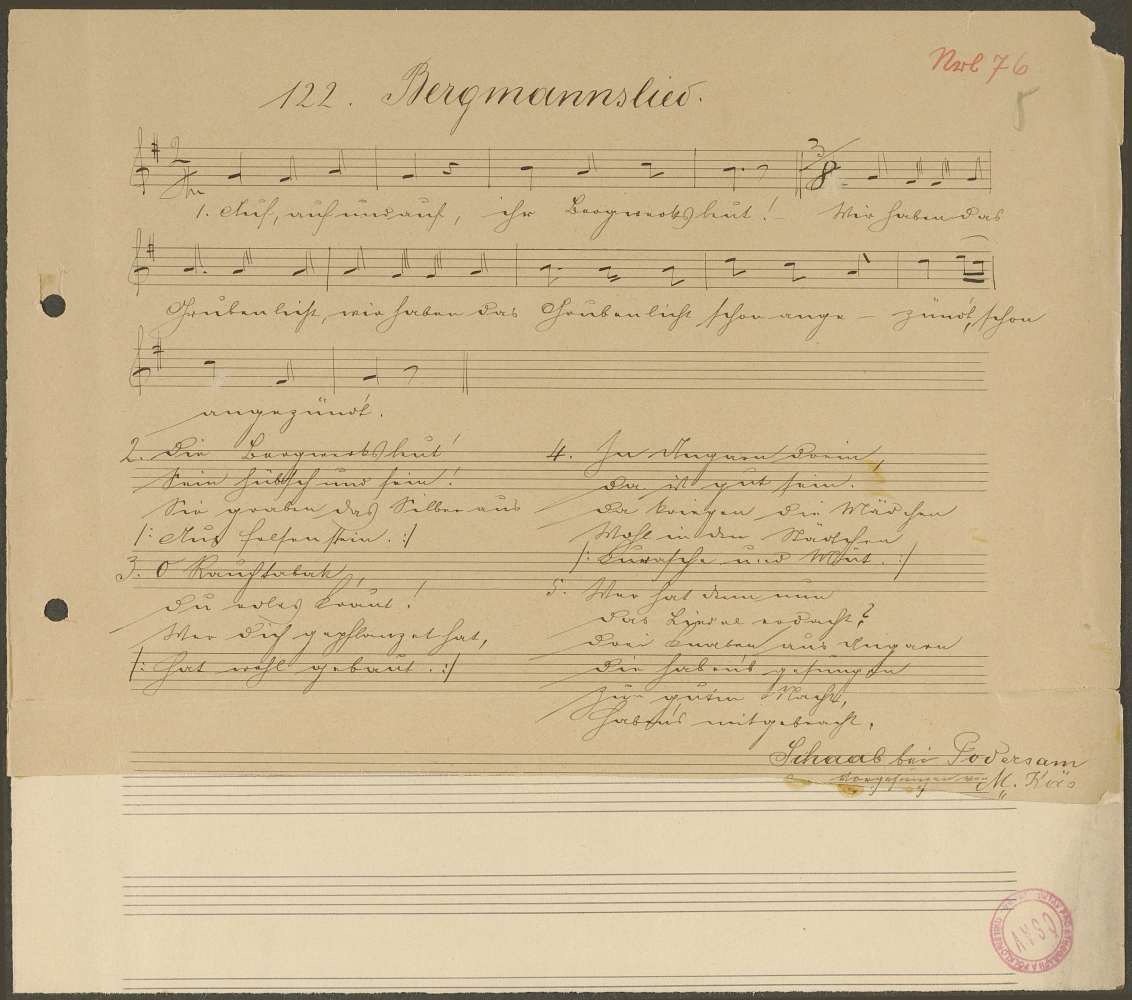 Nrb 76
5
122. Bergmannslied.
1. Auf, auf und auf, ihr Bergwerksleut! Wir haben das
Grubenlicht, wir haben das Grubenlicht schon ange – zünd't, schon
angezünd't.
2. Die Bergwerksleut'
Sein hübsch und fein!
Sie graben das Silber aus
/: Aus Felsenstein. :/
3. O Rauchtabak,
Du edles Kraut!
Wer dich gepflanzet hat,
/: Hat wohl gebaut. :/
4. In Ungarn drein,
Da is gut sein.
Da kriegen die Mädchen
Wohl in den Städtchen
/: Kurasche und Mut. :/
5. Wer hat denn nun
Das Liedel erdacht?
Drei Knaben aus Ungarn
Die haben's gesungen
Zur guten Nacht,
Haben's mitgebracht.
Schaab bei Podersam
Vorgesungen von M.